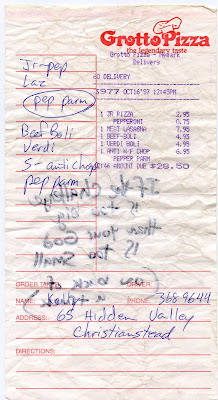 Grotto Pizza
the legendary taste
Grotto Pizza - Newark
Delivery
Jr-pep
Laz
pep parm
Beef Boli
Verdi
S-anti Chop
pep parm
60 DELIVERY
5977 OCT16'97 12:45PM
1 JR PIZZA 2.95
PEPPERONI 0.75
1 MEAT LASAGNA 7.95
1 BEEF-BOLI 4.95
1 VERDI BOLI 4.95
1 ANTI W/F CHOP 6.95
PEPPER PARM
AMOUNT DUE $28.50
If the Challenge
is too big
then your God
is too small
ORDER TAKEN
DRIVER
NAME:
PHONE: 368 9644
ADDRESS: 65 Hidden Valley
Christianstead
DIRECTIONS: